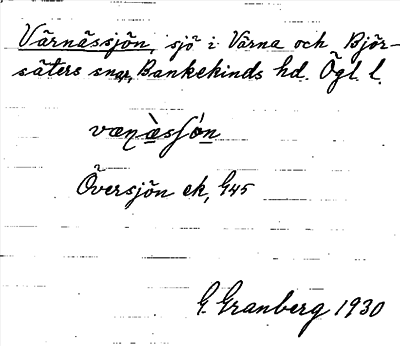 Värnässjön, sjö i Värna och Björ-
säters snar, Bankekinds hd. Ögl. l.
væṇàsʃón
Översjön ek, G45
G. Granberg 1930